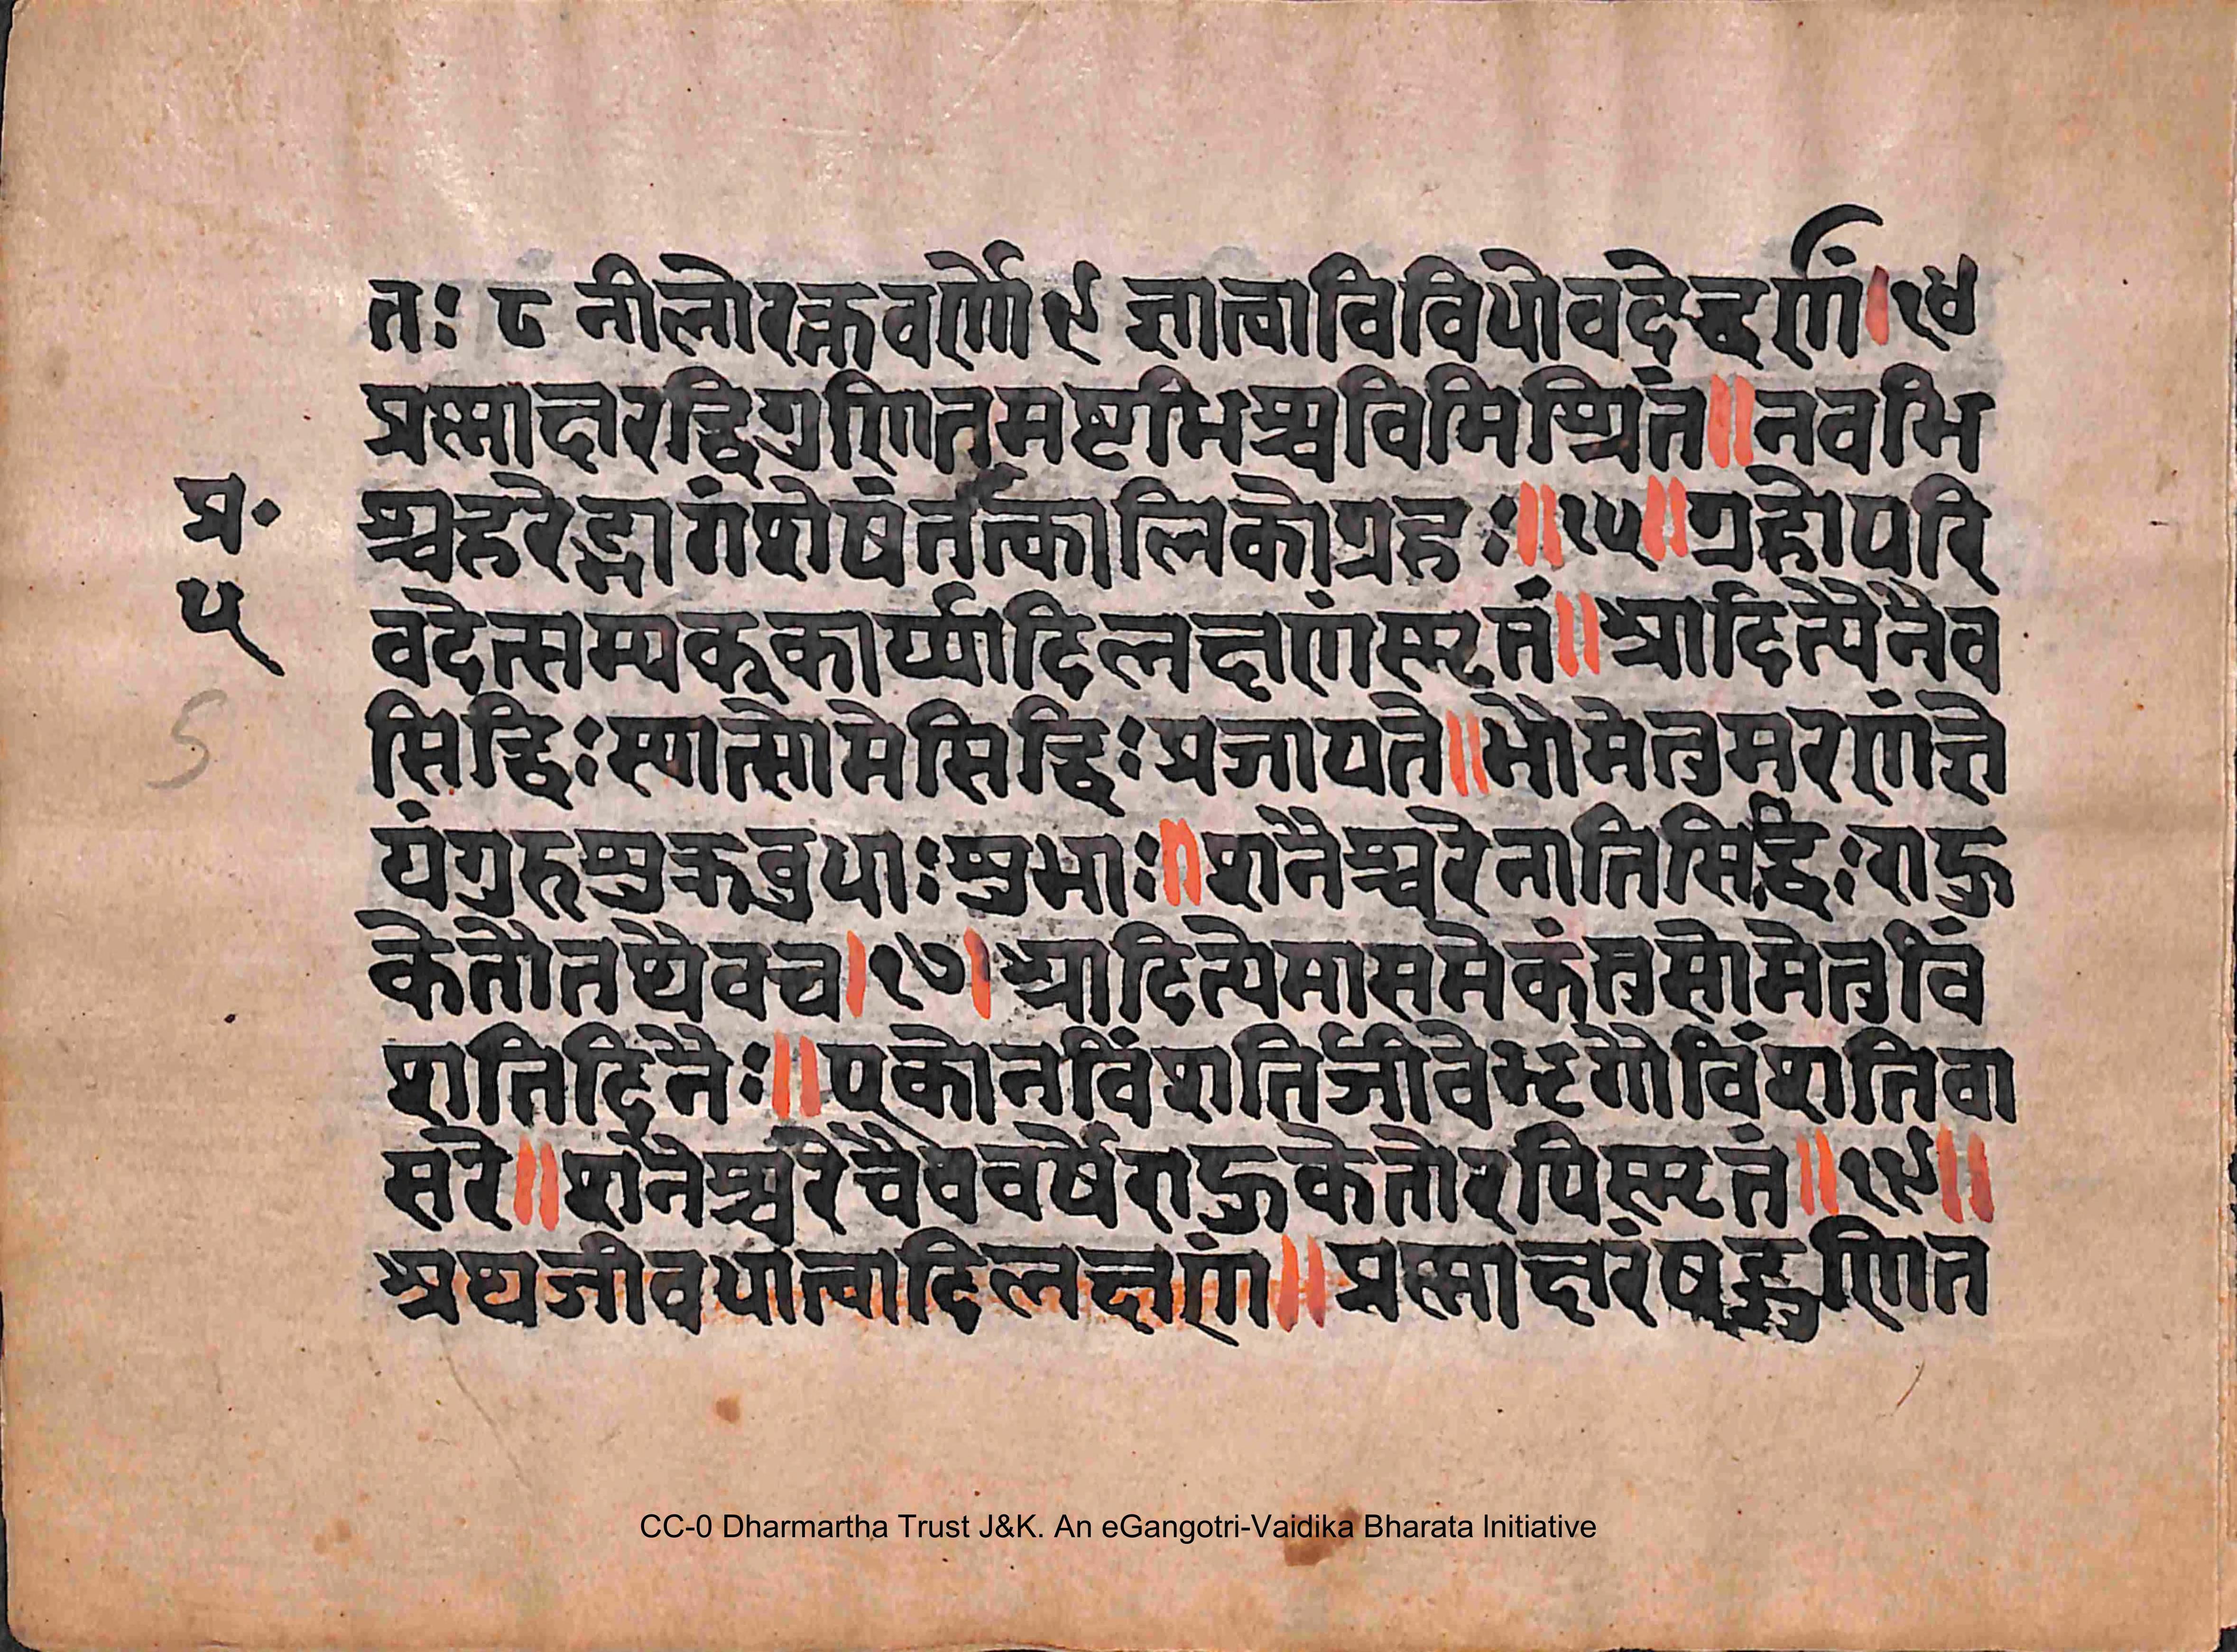 तः ८ नीलोरक्तवर्णो ९ ज्ञात्वाविविधोवदेद्वर्णिं।१४
प्रश्नाक्षरद्विगुणितमष्टाभिश्चविमिश्रितं॥नवभि
श्चहरेद्भागंशेषंतत्कालिकोग्रहः॥१५॥ग्रहोपरि
प्र॰
५
5
वदेत्सम्यक्कार्य्यादिलक्षणंस्मृतं॥आदित्येनैव
सिद्धिःस्यात्सोमेसिद्धिःप्रजायते॥भौमेतुमरणंज्ञे
यंगुरुशुक्रबुधाःशुभाः॥शनैश्चरेनातिसिद्धिःराहु
केतौतथैवच।१७।आदित्येमासमेकंतुसोमेतुविं
शतिदिनैः॥एकोनविंशतिर्जीवेभृगौविंशतिवा
सरे॥शनैश्चरेचैववर्षेराहुकेतोरपिस्मृतं॥१९॥
अथजीवधात्वादिलक्षणं॥प्रश्नाक्षरंषड्गुणित
CC-0 Dharmartha Trust J&K. An eGangotri-Vaidika Bharata Initiative